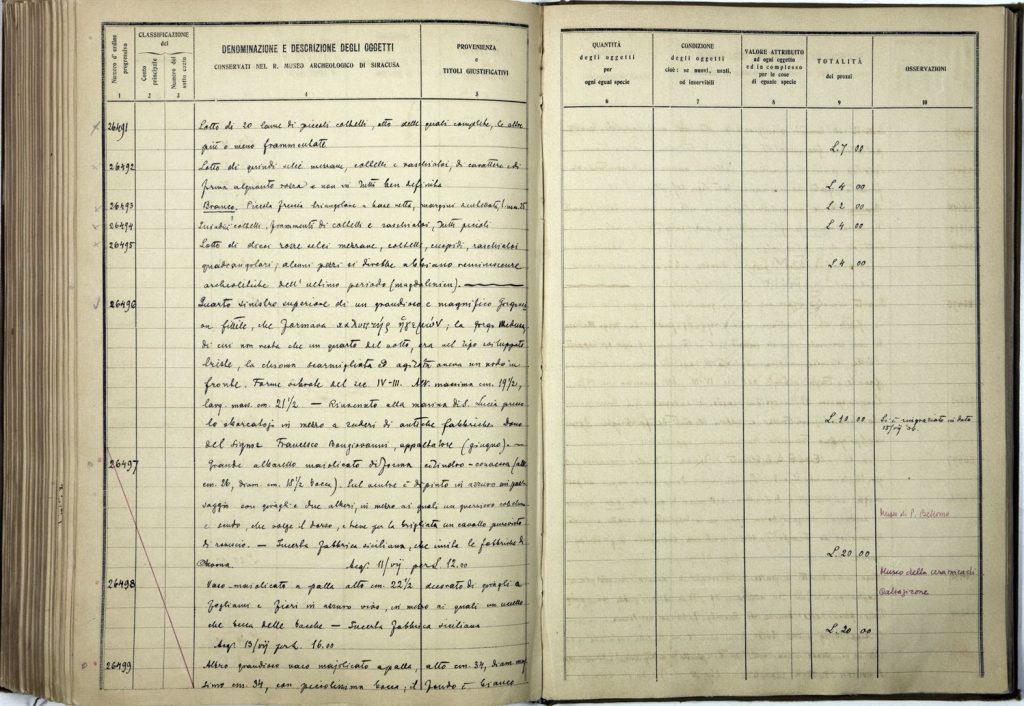 Numero d'ordine progressivo
CLASSIFICAZIONE del
Conto principale
Numero del sotto conto
DENOMINAZIONE E DESCRIZIONE DEGLI OGGETTI
CONSERVATI NEL R. MUSEO ARCHEOLOGICO DI SIRACUSA
PROVENIENZA e TITOLI GIUSTIFICATIVI
1 2 3 4 5
26491 Lotto di 20 lame di piccoli coltelli, otto delle quali complete, le altre
più o meno frammentate
26492 Lotto di quindici selci mezzane, coltelli e raschiatoi, di carattere e di
forma alquanto rozza e non in tutti ben definita
26493 Branco. Piccola freccia triangolare a base retta, margini
26494 coltelli, frammenti di coltelli e raschiatoi, tutti piccoli
26495 Lotto di dieci rozze selci mezzane, coltelli, cuspidi, raschiatoi
quadrangolari; alcuni pezzi si direbbe abbiano reminiscenze
archeolitiche dell'ultimo periodo (magdalenien).
26496 Quarto sinistro superiore di un grandioso e magnifico
on fittile, che formava καλυπτὴρ ἡγεμών; la
di cui non resta che un quarto del volto, era nel tipo sviluppato
triste, la chioma scarmigliata ed agitata aveva un nodo in
fronte. Forme del sec. IV-III. Alt. massima cm. 19 1/2,
larg. mass. cm. 21 1/2. — Rinvenuto alla marina di S. Lucia presso
lo in mezzo a ruderi di antiche fabbriche. Dono
del Signor Francesco Bongiovanni, appaltatore (giugno). —
26497 Grande albarello maiolicato di forma cilindro-concava (alt.
cm. 26, diam. cm. 18 1/2 bocca). Sul ventre è dipinto in azzurro un paes-
saggio con e due alberi, in mezzo ai quali un guerriero con
e scudo, che volge il dorso, e tiene per la briglia un cavallo
di — Incerta fabbrica siciliana, che imita le fabbriche di
Acq. 11/VII per L. 12.00
26498 Vaso maiolicato a palla alto cm. 22 1/2 decorato di a
fogliami e fiori in azzurro vivo, in mezzo ai quali un uccello
che becca delle bacche — Incerta fabbrica siciliana
Acq. 13/VII per L. 16.00
26499 Altro grandioso vaso maiolicato a palla, alto cm. 34, diam. mas-
simo cm. 34, con piccolissima bocca; il fondo è bianco
QUANTITÀ degli oggetti per ogni egual specie
CONDIZIONE degli oggetti cioè: se nuovi, usati, od inservibili
VALORE ATTRIBUITO ad ogni oggetto ed in complesso per le cose di eguale specie
TOTALITÀ dei prezzi
OSSERVAZIONI
6 7 8 9 10
L. 7 00
L. 4 00
L. 2 00
L. 4 00
L. 4 00
L. 10 00 Si è ringraziato in data
15/VII 06.
Museo di P. Bellomo
L. 20 00
Museo della ceramica di
Caltagirone
L. 20 00